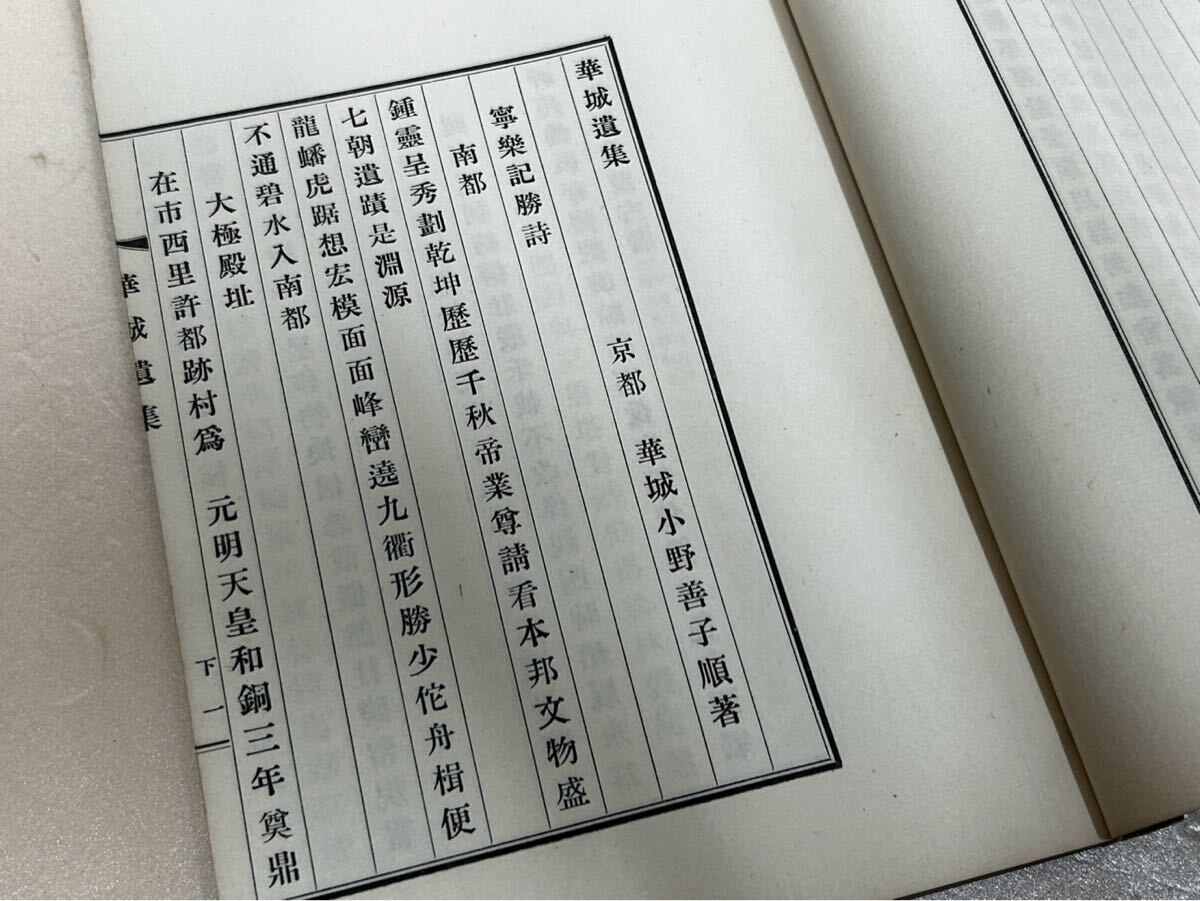 華城遺集
京都 華城小野善子順著
寧樂記勝詩
南都
鍾靈呈秀劃乾坤歷歷千秋帝業尊請看本邦文物盛
七朝遺蹟是淵源
龍蟠虎踞想宏模面面峰巒遶九衢形勝少佗舟楫便
不通碧水入南都
大極殿址
在市西里許都跡村爲 元明天皇和銅三年奠鼎
華城遺集
下 一